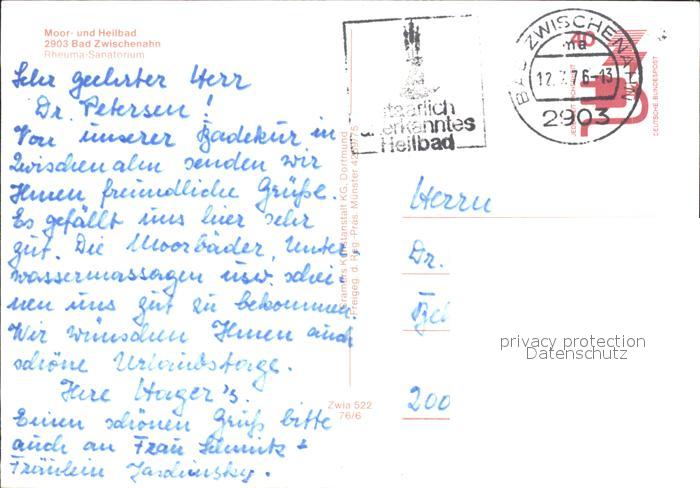 Moor- und Heilbad
2903 Bad Zwischenahn
Rheuma-Sanatorium
Sehr geehrter Herr
Dr. Petersen!
Von unserer Badekur in
Zwischenahn senden wir
Ihnen freundliche Grüße.
Es gefällt uns hier sehr
gut. Die Moorbäder, Unter-
wassermassagen usw. schei-
nen uns gut zu bekommen.
Wir wünschen Ihnen auch
schöne Urlaubstage.
Ihre Hager's.
Einen schönen Gruß bitte
auch an Frau Schmitz +
Fräulein Jaschinsky.
Zwia 522
76/6
Cramers Kunstanstalt KG, Dortmund
Freigeg. d. Reg.-Präs. Münster 4239/75
staatlich
anerkanntes
Heilbad
BAD ZWISCHENAHN
ma
12.7.76-13
2903
40
JEDERZEIT SICHERHEIT
DEUTSCHE BUNDESPOST
Herrn
Dr.
200
privacy protection
Datenschutz